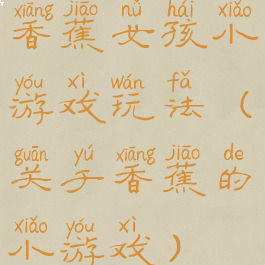 xiāng jiāo nǚ hái xiǎo
香蕉女孩小
yóu xì wán fǎ
游戏玩法（
guān yú xiāng jiāo de
关于香蕉的
xiǎo yóu xì
小游戏）